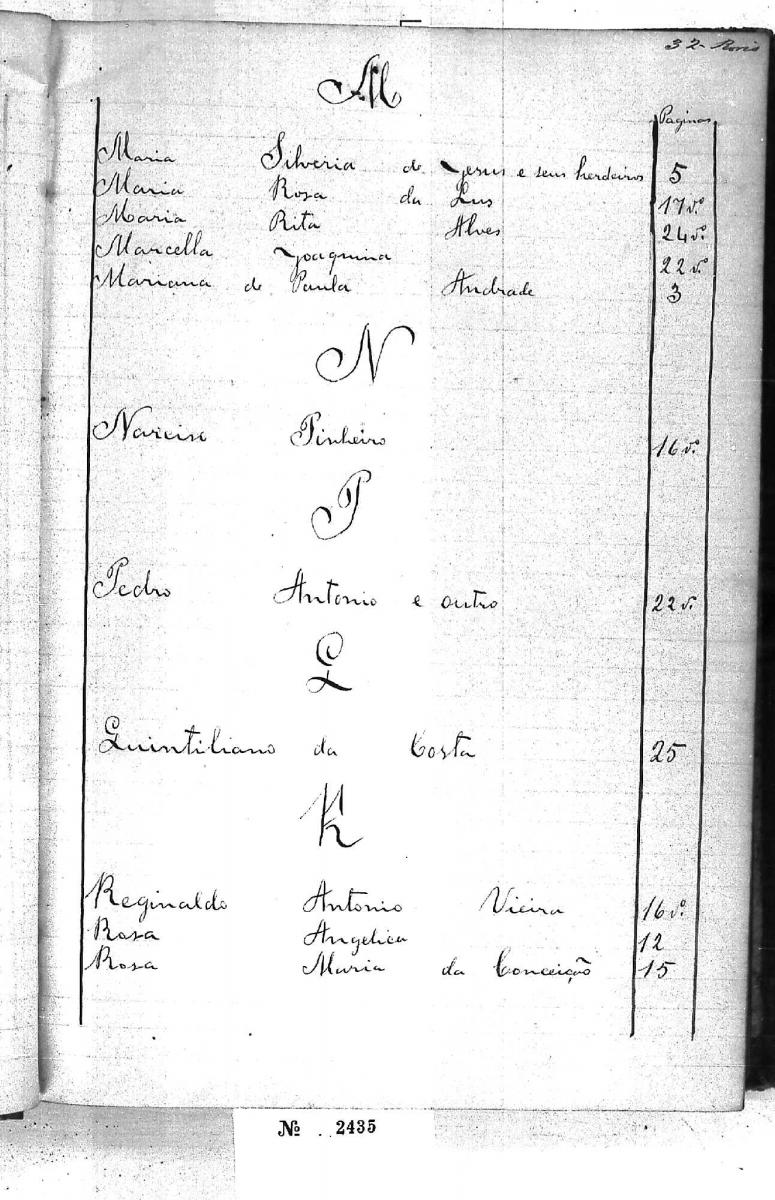 32
M
Paginas
Maria Silveria de Jesus e seus herdeiros 5
Maria Rosa da Lus 17 vº
Maria Rita Alves 24 vº
Marcella Joaquina 22 vº
Mariana de Paula Andrade 3
N
Narciso Pinheiro 16 vº
P
Pedro Antonio e outro 22 v.
Q
Quintiliano da Costa 25
R
Reginaldo Antonio Vieira 16 vº
Rosa Angelica 12
Rosa Maria da Conceição 15
№ 2435